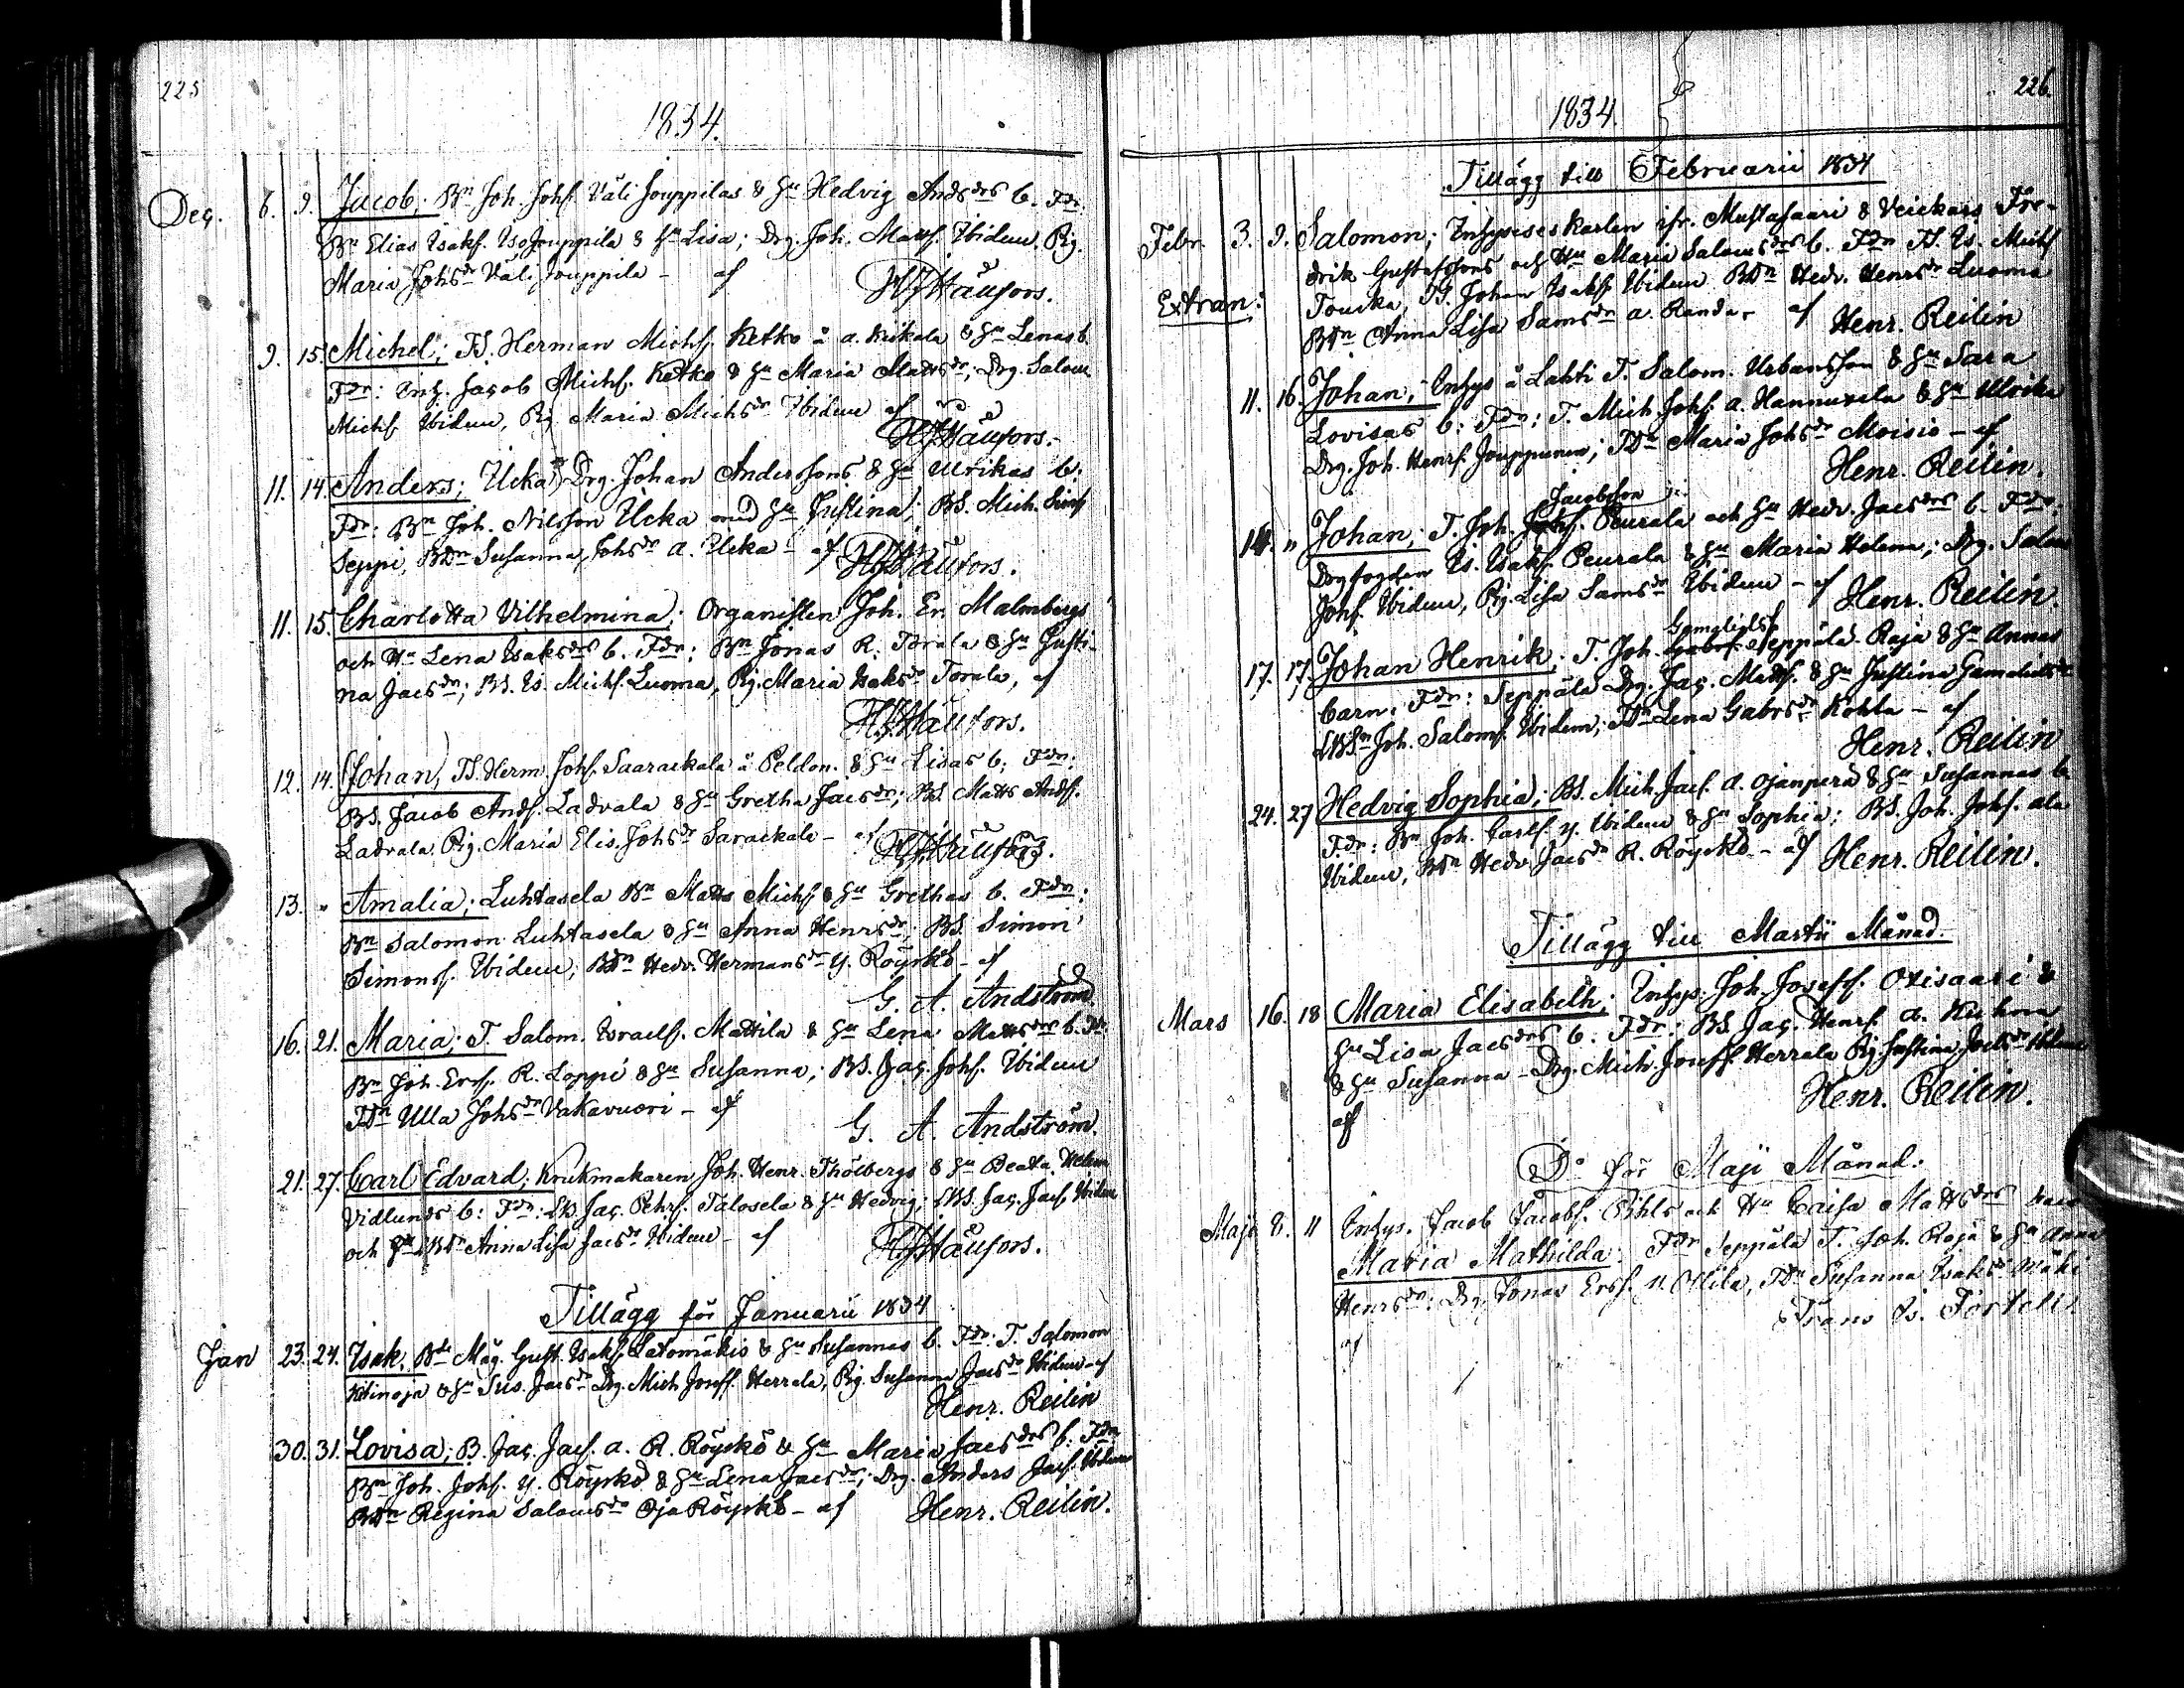 225
1834.
Dec. 6. 9. Jacob; Bn Joh. Johs. Väli Jouppilas & Hu Hedvig Andsdrs b. Fdr:
Bn Elias Isaks. Iso Jouppila & Hu Lisa; Drg. Joh. Matts. Ibidem. Pig.
Maria Johsdr Väli Jouppila - af
9. 15. Michel; TS. Herman Michs. Ketko å a. Keikala & Hu Lenas b.
Fdr: Inh. Jacob Michs. Ketko & Hu Maria Mattsdr; Drg. Salom.
Michs. Ibidem, Pig Maria Michsdr Ibidem af
11. 14. Anders; Ucka Drg. Johan Anderssons & Hu Ulrikas b.
Fdr: Bn Joh. Nilsson Ucka med Hu Justina; BS. Mich. Sims
Seppi, BDr Susanna Johsdr a. Ucka - af
11. 15. Charlotta Vilhelmina; Organisten Joh. Er. Malmbergs
och Hu Lena Isaksdrs b. Fdr: Bn Jonas R. Torala & Hu Justi-
na Jacsdr; BS. Is. Michs. Luoma, Pig. Maria Isaksdr Torala, af
12. 14. Johan, TS. Herm. Johs. Saarackala å Peldon. & Hu Lisas b; Fdr:
BS. Jacob Ands. Ladvala & Hu Gretha Jacsdr; BS. Matts Ands.
Ladvala, Pig. Maria Elis. Johsdr Sarackala - af
13. " Amalia; Luhtasela Bn Matts Michs & Hu Grethas b. Fdr:
Bn Salomon Luhtasela & Hu Anna Henrsdr; BS. Simon
Simons. Ibidem; BDr Hedv. Hermansdr y. Röyskö - af
G. A. Andström.
16. 21. Maria; T. Salom. Israels. Mattila & Hu Lena Mattsdrs b. Fdr
Bn Joh. Ers. R. Loppi & Hu Susanna; BS. Jac. Johs. Ibidem
TDr Ulla Johsdr Vakavuori - af
G. A. Andström.
21. 27. Carl Edvard; Krukmakaren Joh. Henr. Thölbergs & Hu Beata Helena
Vidlunds b: Fdr: LB. Jac. Pehrs. Talosela & Hu Hedvig; LBS. Jac. Jacs. Ibidem
och LBDr Anna Lisa Jacsdr Ibidem - af
Tillägg för Januarii 1834
Jan 23. 24. Isak. Bde Måg. Gust. Isaks. Latomäkis & Hu Susannas b. Fdr: T. Salomon
& Hu Sus. Jacsdr Drg. Mich Josefs. Herrala, Pig. Susanna Jacsdr Ibidem - af
Henr. Reilin
30. 31. Lovisa; B. Jac. Jacs. a. R. Röyskö & Hu Maria Jacsdrs b. Fdr
Bn Joh. Johs. y. Röyskö & Hu Lena Jacsdr; Drg. Anders Jacs. Ibidem
BDr Regina Salomsdr Oja Röyskö - af Henr. Reilin.
226.
1834.
Tillägg till Februarii 1834
Febr. 3. 9. Salomon; Inhyseskarlen ifr. Mustasaari & Veickars Fre-
drik Gustafssons och Hu Maria Salomsdrs b. Fdr TS. Is. Michs
Extran: Touska, TS. Johan Isaks. Ibidem BDr Hedv. Henrsdr Luoma
BDr Anna Lisa Samsdr a. Randa - af Henr. Reilin
11. 16. Johan; Inhys å Lahti T. Salom. Urbansson & Hu Sara
Lovisas b: Fdr: T. Mich. Johs. a. Hannuxela & Hu Ulrika
Drg. Joh. Henrs. Jouppunen; TDr Maria Johsdr Moisio - af
Henr. Reilin.
Jacobsson
14. " Johan; T. Joh. Peurala och Hu Hedv. Jacsdrs b. Fdr:
Drgfogden Is. Isaks. Peurala & Hu Maria Helena; Drg. Salom
Johs. Ibidem, Pig. Lisa Samsdr Ibidem - af Henr. Reilin.
Gamaliels.
17. 17. Johan Henrik; T. Joh. Seppälä Raja & Hu Annas
barn: Fdr: Seppälä Drg. Jac. Matts. & Hu Justina Gamalielsdr
LBSn Joh. Saloms. Ibidem; TDr Lena Gabrsdr Kohla - af
Henr. Reilin
24. 27 Hedvig Sophia; BS. Mich. Jacs. a. Ojanperä & Hu Susannas b
Fdr: Bn Joh. Carls. y. Ibidem & Hu Sophia; BS. Joh. Johs. ala
Ibidem, BDr Hedv Jacsdr R. Röyskö - af Henr. Reilin.
Tillägg till Martii Månad.
Mars 16. 18 Maria Elisabeth; Inhys. Joh. Josefs. Oxisaari &
Hu Lisa Jacsdrs b. Fdr: BS. Jac. Henrs. a. Kuhna
& Hu Susanna - Drg. Mich. Josefs. Herrala Pig. Justina Jacsdr Ibidem
af Henr. Reilin.
Do för Maji Månad.
Maji 8. 11 Inhys. Jacob Jacobs. Pihls och Hu Caisa Mattsdrs barn
Maria Mathilda. Fdr Seppälä T. Joh. Raja & Hu Anna
Henrsdr: Drg. Jonas Ers. N. Ollila, TDr Susanna Isaksdr Mäki
af Frans Is. Fortelis